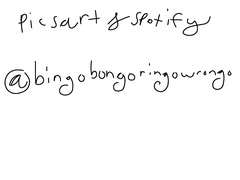 picsart & spotify
@bingobongoringowrongo